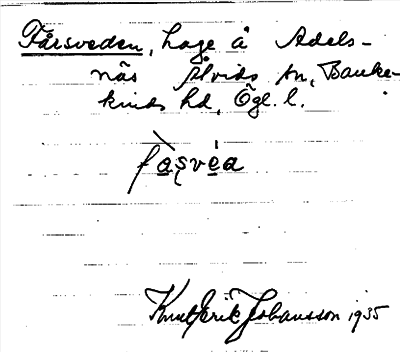 Fårsveden, hage å Adels-
näs Åtvids sn, Banke-
kinds hd, Ögl. l.
fa̲ʂve̲a
Knut Erik Johansson 1935